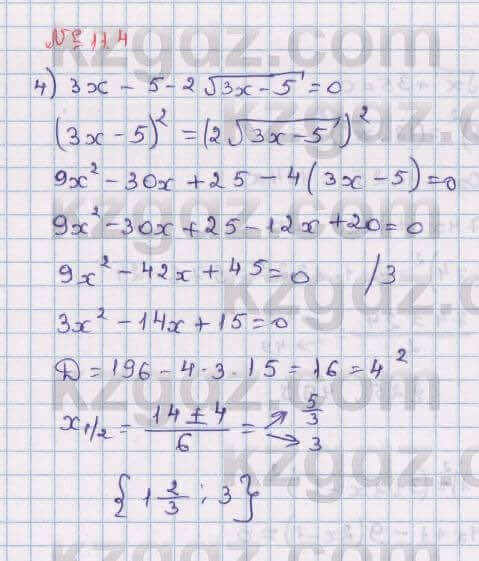 № 11.4
4) 3x - 5 - 2√(3x - 5) = 0
(3x - 5)² = (2√(3x - 5))²
9x² - 30x + 25 - 4(3x - 5) = 0
9x² - 30x + 25 - 12x + 20 = 0
9x² - 42x + 45 = 0 /3
3x² - 14x + 15 = 0
D = 196 - 4·3·15 = 16 = 4²
x₁/₂ = (14 ± 4)/6 = ↗ 5/3 ↘ 3
{1 2/3 ; 3}
kzgdz.com